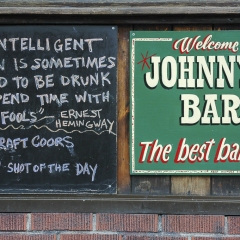 INTELLIGENT
IS SOMETIMES
TO BE DRUNK
SPEND TIME WITH
FOOLS" - ERNEST
HEMINGWAY
CRAFT COORS
SHOT OF THE DAY
Welcome
JOHNNY'
BAR
The best ba